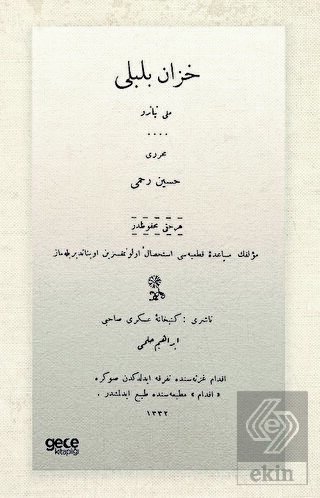 خزان بلبلی
ملی تیاترو
....
محرری
حسین رحمی
هر حقی محفوظدر
مؤلفك مساعدهٔ قطعیه‌سی استحصال اولونمقسزین اویناندیریله‌ماز
ناشری : کتبخانهٔ عسکری صاحبی
ابراهیم حلمی
اقدام غزته‌سنده تفرقه ایدلدکدن صوکره
« اقدام » مطبعه‌سنده طبع ایدلشدر .
١٣٣٢
gece
kitaplığı
ekin